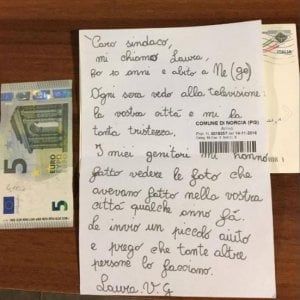 Caro sindaco,
mi chiamo Laura,
ho 10 anni e abito a Ne (ge)
Ogni sera vedo alla televisione
la vostra città e mi fa
tanta tristezza.
I miei genitori mi hanno
fatto vedere le foto che
avevano fatto nella vostra
città qualche anno fa.
Le invio un piccolo aiuto
e prego che tante altre
persone lo facciano.
Laura. V. G
COMUNE DI NORCIA (PG)
ITALIA
5
5 EURO